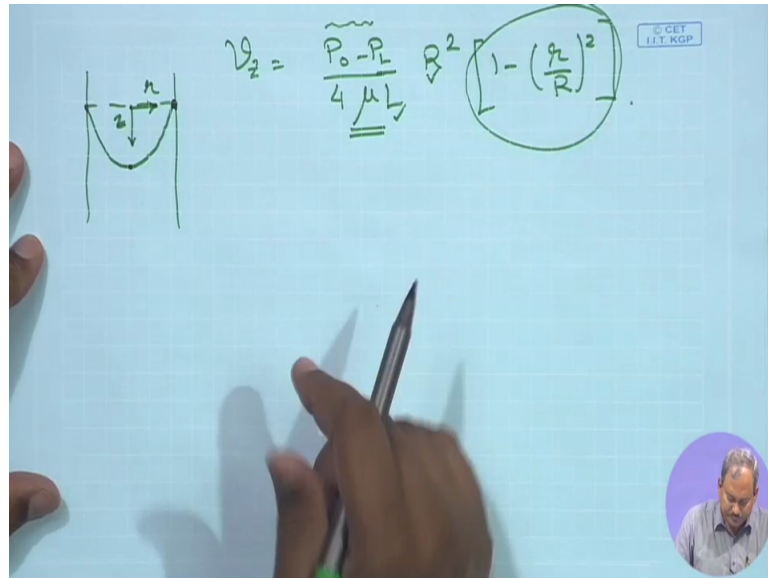 © CET
I.I.T. KGP
V_z = (P_0 - P_L)/(4 μ L) R^2 [1 - (r/R)^2].
r
z